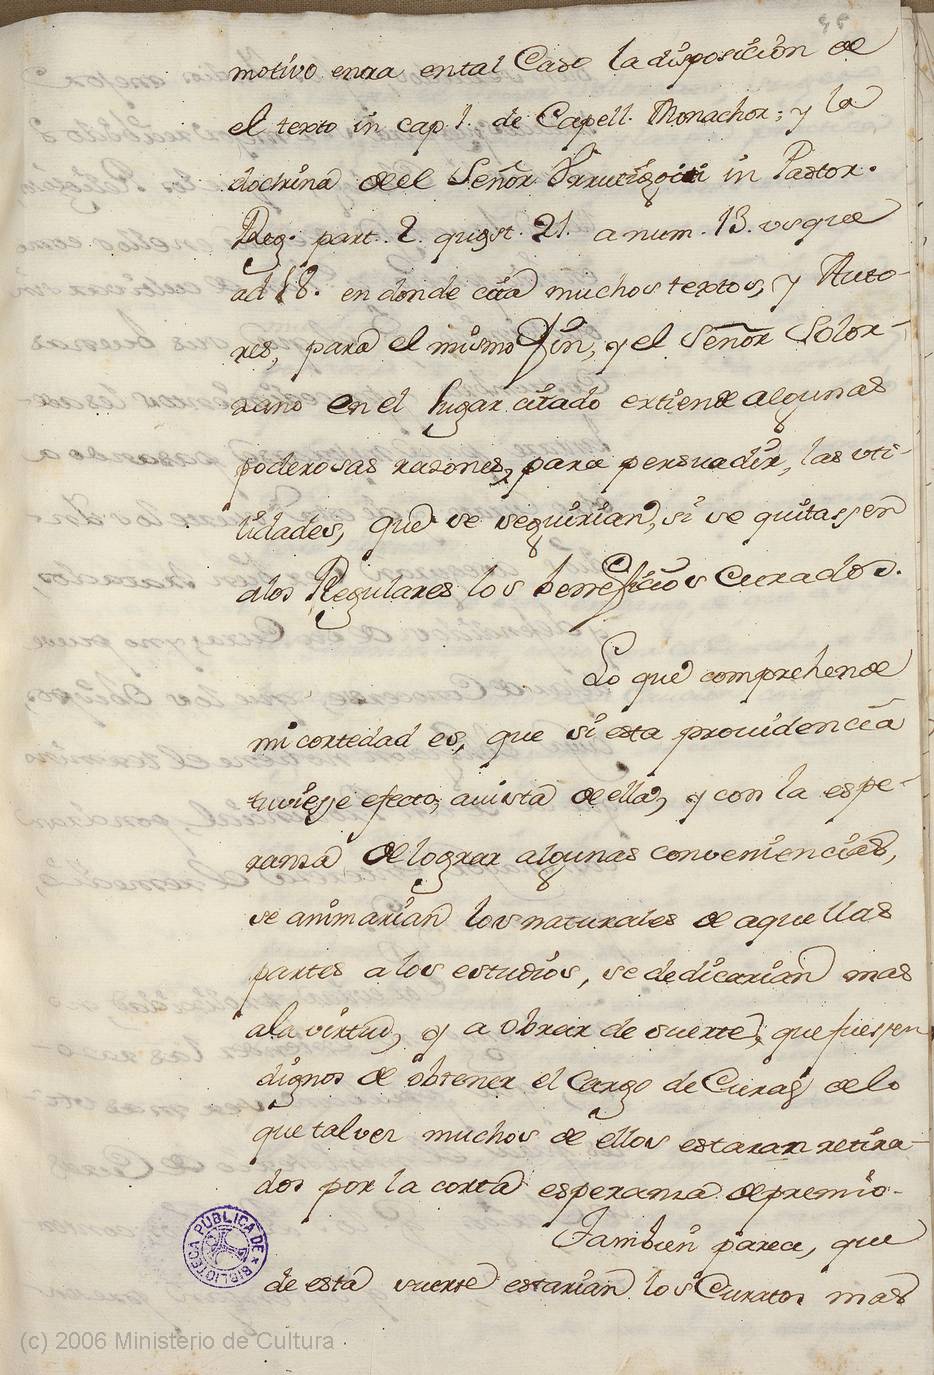 motivo entra ental Caso la disposición de
el texto in cap. 1. de Capell. Monachor; y la
doctrina deel Señor in Pastor.
Reg. part. 2. quest. 21. a num. 13. usque
ad 18. en donde cita muchos textos, y Auto-
res, para el mismo fin, y el Señor Solor-
zano en el lugar citado extiende algunas
poderosas razones, para persuadir, las uti-
lidades, que se seguirian, si se quitassen
alos Regulares los beneficios Curados.
Lo que comprehende
mi cortedad es, que si esta providencia
tuviesse efecto, avista de ella, y con la espe-
ranza de lograr algunas conveniencias,
se animarian los naturales de aquellas
partes a los estudios, se dedicarian mas
ala virtud, y a obrar de suerte, que fuessen
dignos de obtener el Cargo de Curas, de lo
que talvez muchos de ellos estaran retira-
dos por la corta esperanza de premio.
Tambien parece, que
de esta suerte estarian los Curatos mas
BIBLIOTECA PÚBLICA DE
(c) 2006 Ministerio de Cultura